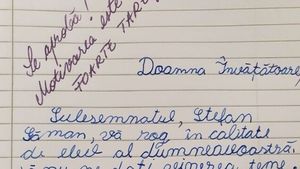 Se aprobă!
Motivarea este
FOARTE TARE
Doamna Învățătoare,
Subsemnatul, Ștefan
Șăman, vă rog în calitate
de elev al dumneavoastră
să nu ne dați vinerea teme